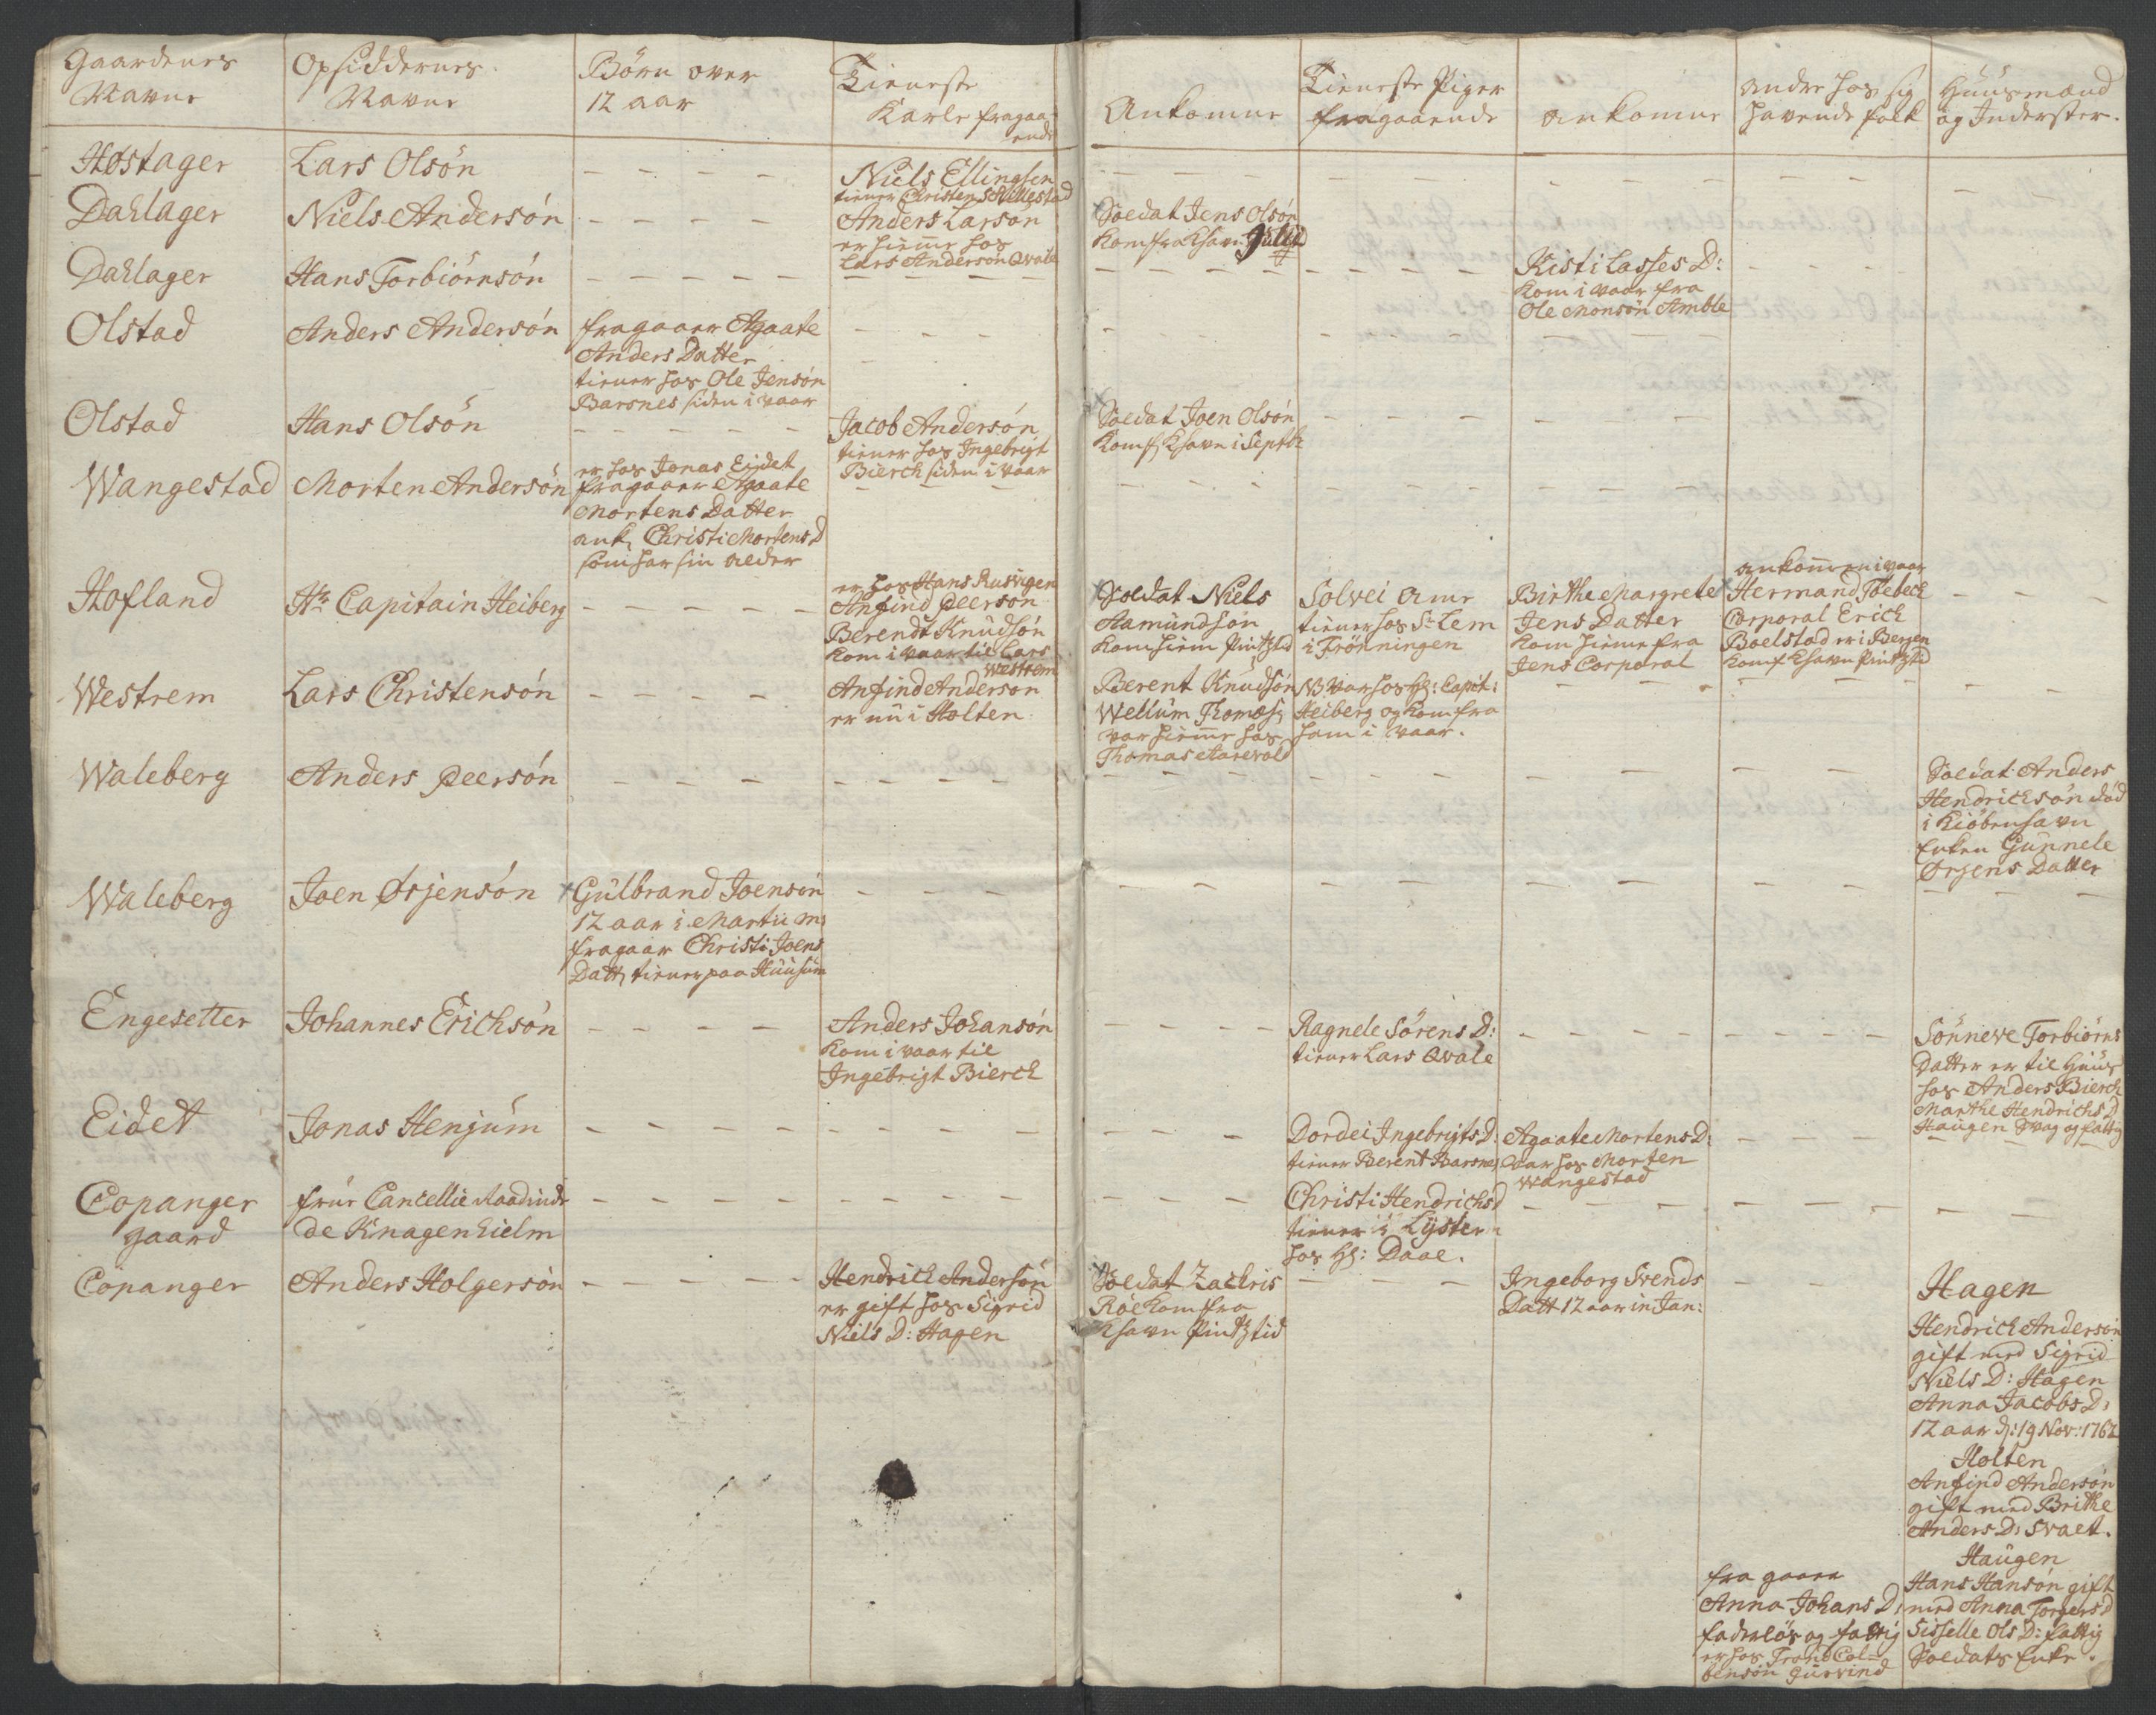 Gaardenes
Navne
Opsiddernes
Navne
Børn over
12 aar
Tieneste
Karle fragaa-
ende
Ankomne
Tieneste Piger
fragaaende
ankomne
andre hos sig
havende folk
Huusmænd
og Inderster.
Høstager
Lars Olsön
Niels Ellingsen
tiener Christen Stillestad
Dahlager
Niels Andersön
Anders Larson
er hieme hos
Lars Anderson Qvale
Soldat Jens Olsön
kom fra Khavn Jullii
Dahlager
Hans Torbiörnsön
Kisti Lasses D:
kom i vaar fra
Ole Monsön Amble
Olstad
Anders Andersön
fragaaer Agaate
Anders Datter
tiener hos Ole Jensön
Barsnes siden i vaar
Olstad
Hans Olsön
Jacob Andersön
tiener hos Ingebrigt
Bierck siden i vaar
Soldat Joen Olsön
kom f Khavn i Septb
Wangestad
Morten Andersön
er hos Jonas Eidet
fragaaer Agaate
Mortens Datter
ank, Christi Mortens D
som har sin alder
Hofland
Hr Capitain Heiberg
er hos Hans Rusvigen
Anfind Peerson
Berendt Knudsön
kom i vaar til Lars
Westrem
Soldat Niels
Aamundsön
kom hiem Pintztid
Solvei Amr
tiener hos Sr Lem
i Frönningen
Birthe Margrete
Jens Datter
kom hieme fra
Jens Corporal
ankommen i vaar
Hermand Töebeck
Corporal Erick
Boelstad er i Bergen
kom f Khavn Pintztid
Westrem
Lars Christensön
Anfind Anderson
er nu i Holten
Berent Knudsön
Wellum Thomæs
var hieme hos
Thomas Aarevold
NB var hos Hl: Capit:
Heiberg og kom fra
ham i vaar.
Waleberg
Anders Peersön
Soldat Anders
Hendricksön död
i Kiöbenhavn
Enken Gunnele
Ørjens Datter
Waleberg
Joen Ørjensön
Gulbrand Joensön
12 aar i Martii m:
fragaar Christi Joens
Datt, tiener paa Huusum
Engesetter
Johannes Erichsön
Anders Johansön
kom i vaar til
Ingebrigt Bierck
Ragnele Sörens D:
tiener Lars Qvale
Sönneve Torbiörns
Datter er til Huus
hos Anders Bierck
Marthe Hendrichs D
Haugen Svag og fattig
Eidet
Jonas Henjum
Dordei Ingebrigts D:
tiener Berent Barsnes
Agaate Mortens D:
var hos Morten
Wangestad
Copanger
gaard
frue Cancellie Raadinde
de Knagenhielm
Christi Hendrichs D
tiener i Lyster
hos Hl: Daae.
Copanger
Anders Holgersön
Hendrich Andersön
er gift hos Sigrid
Niels D: Hagen
Soldat Zachris
Röe kom fra
Khavn Pintztid
Ingeborg Svends
Datt 12 aar in Jan:
Hagen
Hendrich Andersön
gift med Sigrid
Niels D: Hagen
Anna Jacobs D:
12 aar d: 19 Nov: 1762
Holten
Anfind Andersön
gift med Brithe
Anders D: Svaet.
Haugen
Hans Hansön gift
med Anna Torgers D
Sisselle Ols D: fattig
Soldats Enke.
fra gaaer
Anna Johans D:
faderlös og fattig
er hos Trond Col-
bensön Gurvind